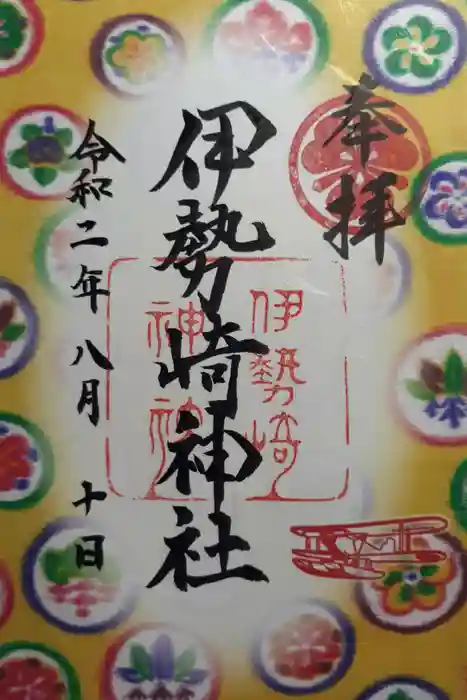 奉拝
伊勢崎神社
伊勢崎
神社
令和二年八月十日